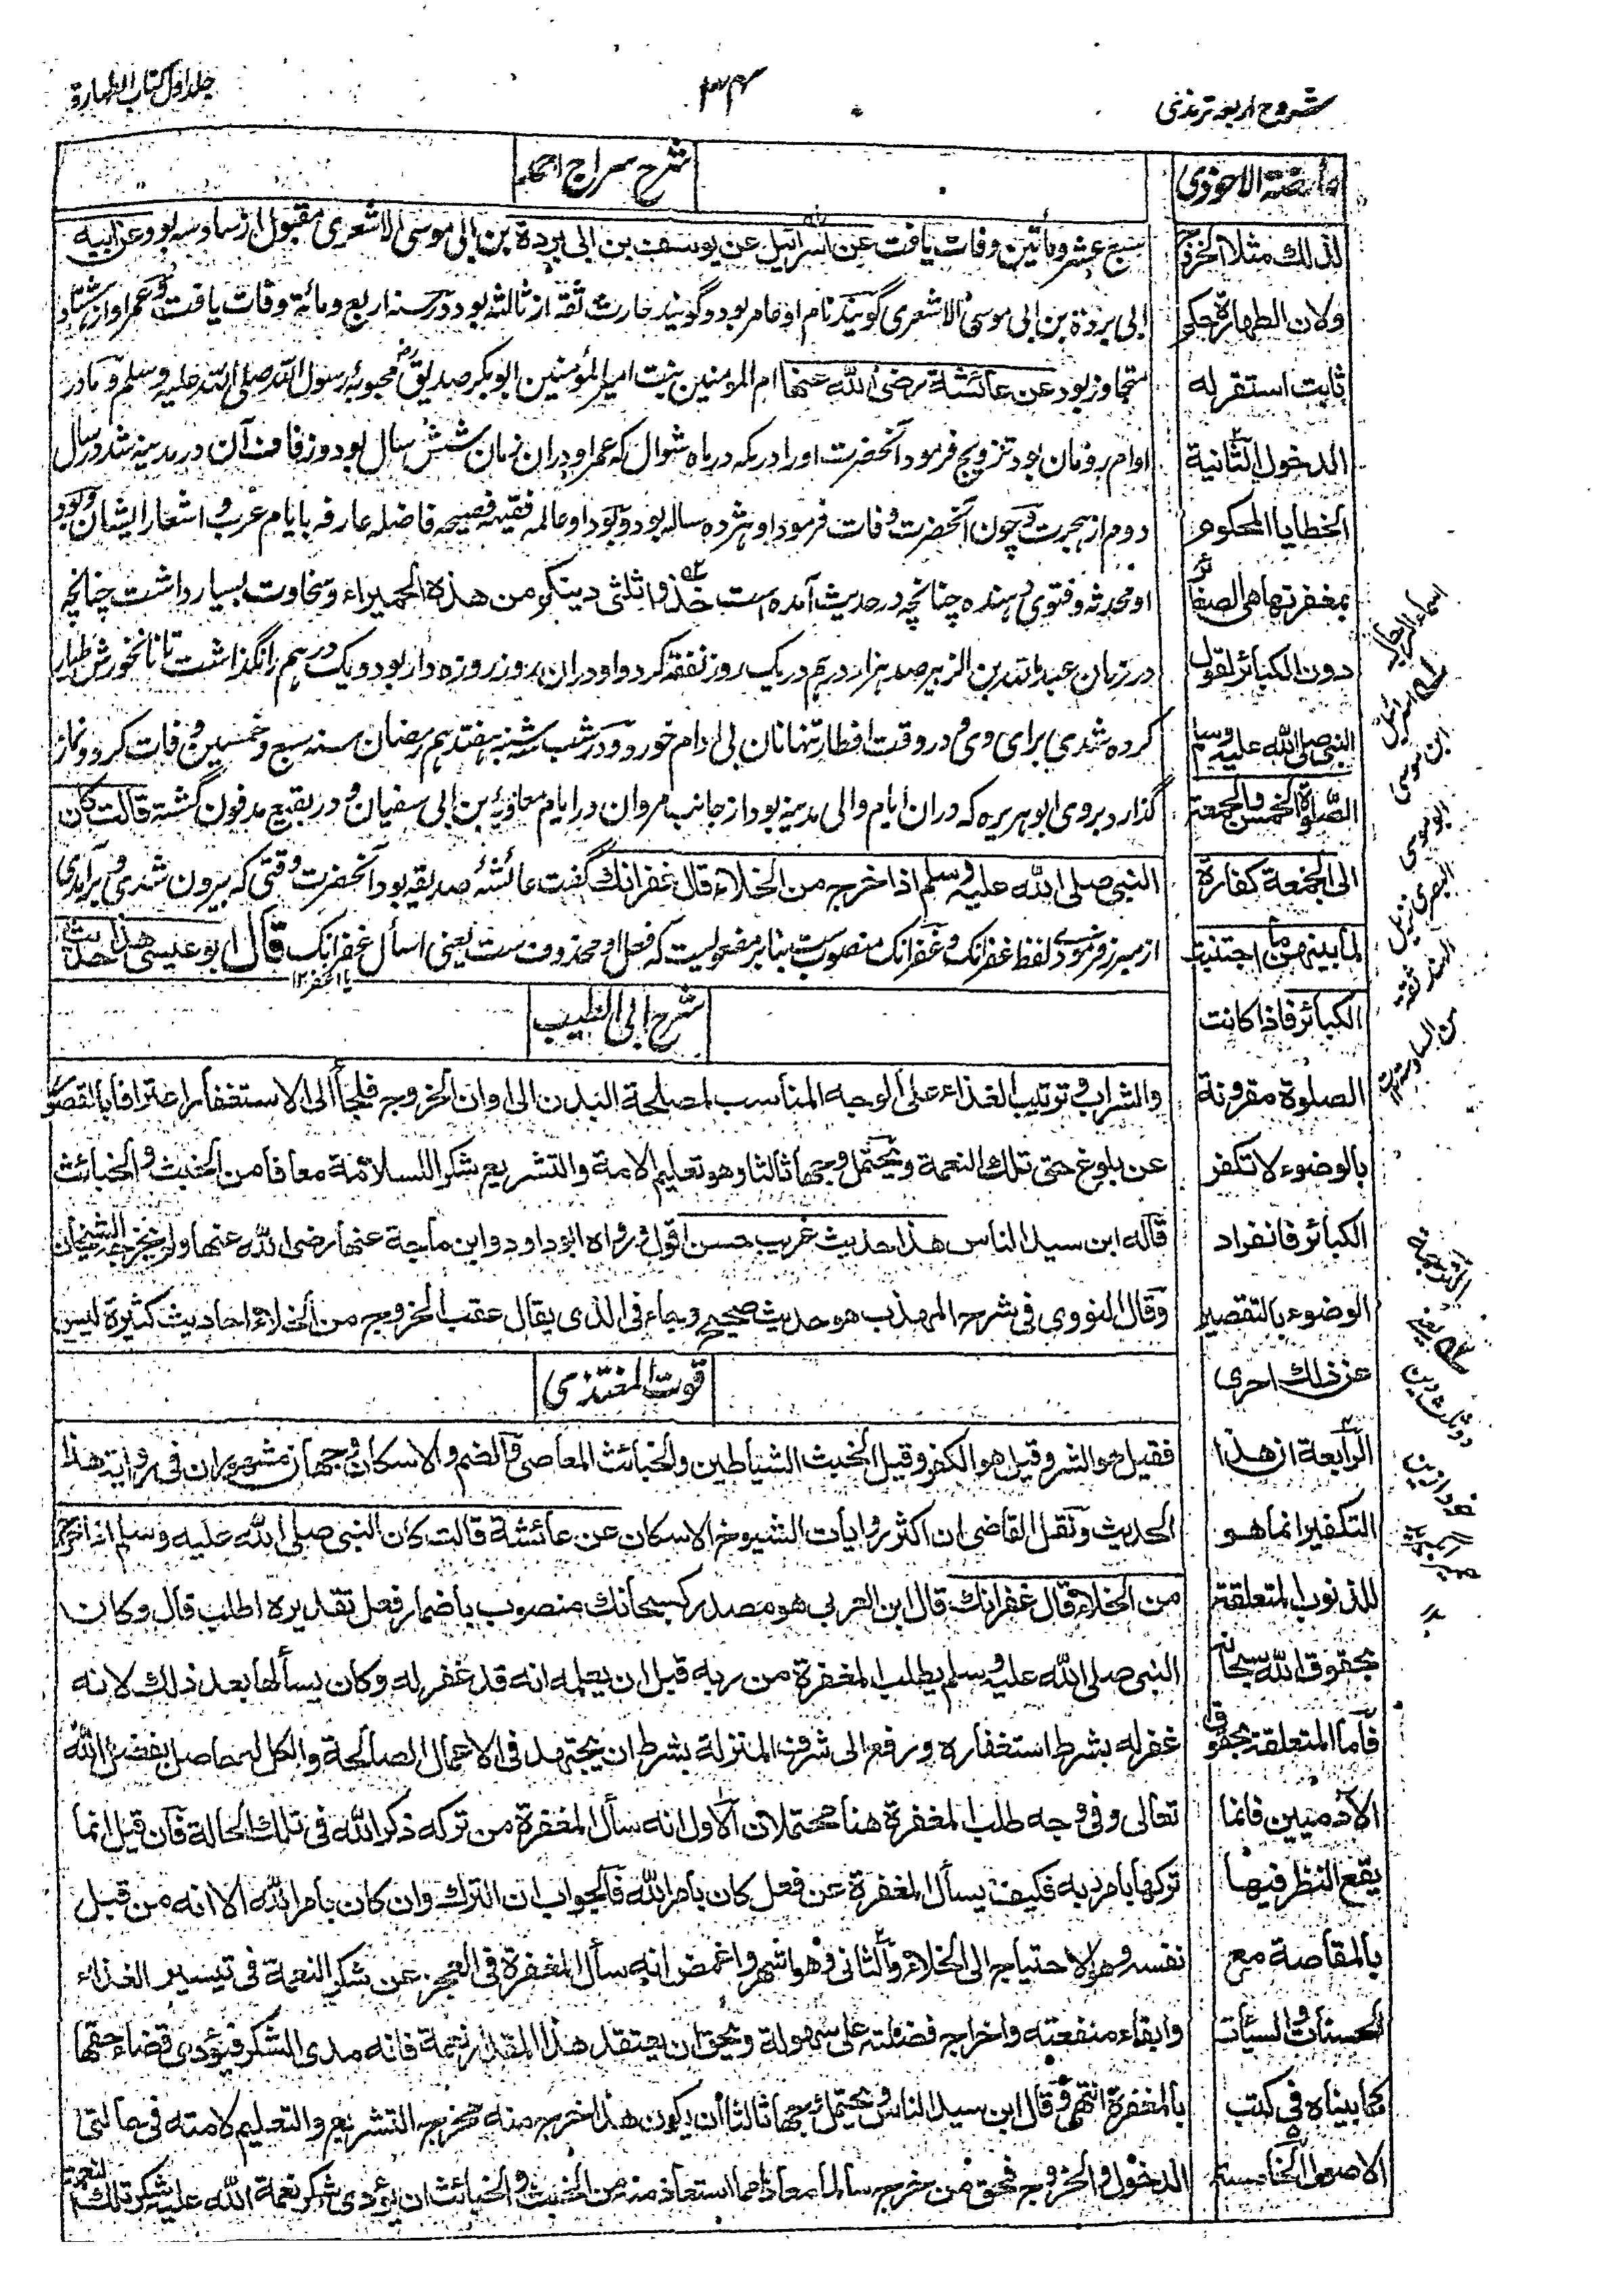 شروح اربعہ ترمذی
۳۴
جلد اول کتاب الطهارة
عارضة الاحوذی
لذلك مثلا الخروج
ولان الطهارة حكم
ثابت استقر له
الدخول الثانية
الخطايا المحكوم
بمغفرتها هی الصغائر
دون الكبائر لقول
النبی صلی الله علیه وسلم
الصلوة الخمس والجمعة
الی الجمعة كفارة
لما بینهن ما اجتنبت
الكبائر فاذا كانت
الصلوة مقرونة
بالوضوء لا تكفر
الكبائر فانفراد
الوضوء بالتقصیر
عن ذلك احری
الرابعة ان هذا
التكفیر انما هو
للذنوب المتعلقة
بحقوق الله سبحانه
فاما المتعلقة بحقوق
الآدمیین فانما
یقع النظر فیها
بالمقاصة مع
الحسنات والسیأت
كما بیناه فی كتب
الاصول الخامسة
شرح سراج احمد
سبع عشر ومأتین وفات یافت عن اسرائیل عن یوسف بن ابی بردة بن ابی موسی الاشعری مقبول از سادسه بود وعن ابیه
ابی بردة بن ابی موسی الاشعری گویند نام او عامر بود وگویند حارث ثقه از ثالثه بود در سنه اربع ومائة وفات یافت وعمر او از هشتاد
متجاوز بود عن عائشة رضی الله عنها ام المومنین بنت امیر المؤمنین ابوبکر صدیق محبوبهٔ رسول الله صلی الله علیه وسلم ومادر
او ام رومان بود تزویج فرمود آنحضرت او را در مکه در ماه شوال که عمر او دران زمان شش سال بود وزفاف آن در مدینه شد در سال
دوم از هجرت وچون آنحضرت وفات فرمود او هژده ساله بود وبود او عالمه فقیهه فصیحه فاضله عارفه بایام عرب واشعار ایشان وبود
او محدثه وفتوی دهنده چنانچه در حدیث آمده است خذوا ثلثی دینکم من هذه الحمیراء وسخاوت بسیار داشت چنانچه
در زمان عبدالله بن الزبیر صد هزار درهم در یک روز نفقه کرد واو دران روز روزه دار بود ویک درهم را نگذاشت تا نانخورش طیار
کرده شدی برای وی ودر وقت افطار تنها نان بی ادام خورد ودر شب سه شنبه هفتدهم رمضان سنه سبع وخمسین وفات کرد ونماز
گذارد بر وی ابوهریره که دران ایام والی مدینه بود از جانب مروان در ایام معاویه بن ابی سفیان ودر بقیع مدفون گشته قالت کان
النبی صلی الله علیه وسلم اذا خرج من الخلاء قال غفرانك گفت عائشهٔ صدیقه بود آنحضرت وقتی که بیرون شدی وبر آمدی
از مبرز فرمودے لفظ غفرانک وغفرانک منصوب ست بنا بر مفعولیت که فعل او محذوف ست یعنی اسأل غفرانک قال ابو عیسی هذا حدیث
یا اغفر ۱۲
شرح ابی الطیب
والشراب وترتیب الغذاء علی الوجه المناسب لمصلحة البدن الی اوان الخروج فلجأ الی الاستغفار اعترافا بالقصور
عن بلوغ حق تلك النعمة ویحتمل وجها ثالثا وهو تعلیم الامة والتشریع شكرا للسلامة معافا من الخبث والخبائث
قاله ابن سید الناس هذا حدیث غریب حسن اقول رواه ابوداود وابن ماجة عنها رضی الله عنها ولم یخرجه الشیخان
وقال النووی فی شرح المهذب هو حدیث صحیح وجاء فی الذی یقال عقب الخروج من الخلاء احادیث كثیرة لیس
قوت المغتذی
فقیل هو الشر وقیل هو الكفر وقیل الخبث الشیاطین والخبائث المعاصی والضم والاسكان وجهان مشهوران فی روایة هذا
الحدیث ونقل القاضی ان اكثر روایات الشیوخ الاسكان عن عائشة قالت كان النبی صلی الله علیه وسلم اذا خرج
من الخلاء قال غفرانك قال ابن العربی هو مصدر كسبحانك منصوب باضمار فعل تقدیره اطلب قال وكان
النبی صلی الله علیه وسلم یطلب المغفرة من ربه قبل ان یعلمه انه قد غفر له وكان یسألها بعد ذلك لانه
غفر له بشرط استغفاره ورفع الی شرف المنزلة بشرط ان یجتهد فی الاعمال الصالحة والكل له حاصل بفضل الله
تعالی وفی وجه طلب المغفرة هنا محتملان الاول انه سأل المغفرة من تركه ذكر الله فی تلك الحالة فان قیل انما
تركها بامر ربه فكیف یسأل المغفرة عن فعل كان بامر الله فالجواب ان الترك وان كان بامر الله الا انه من قبل
نفسه وهو الاحتیاج الی الخلاء والثانی وهو اشهر واغمض انه سأل المغفرة فی العجز عن شكر النعمة فی تیسیر الغذاء
وابقاء منفعته واخراج فضلته علی سهولة ویحق ان یعتقد هذا المقدار نعمة فانه مدی الشكر فیؤدی قضاء حقها
بالمغفرة انتهی وقال ابن سید الناس ویحتمل وجها ثالثا أن یكون هذا خرج منه مخرج التشریع والتعلیم لامته فی حالتی
الدخول والخروج فحق من خرج سالما معاذا مما استعاذ منه من الخبث والخبائث ان یؤدی شكر نعمة الله علیه شكر تلك النعمة
اسماء الرجال
اسرائیل
ابن موسی
ابو موسی
البصری نزیل
السند ثقة
من السادسة ۱۲
الترجمة
یعنی
دو ثلث دین
خود ازین